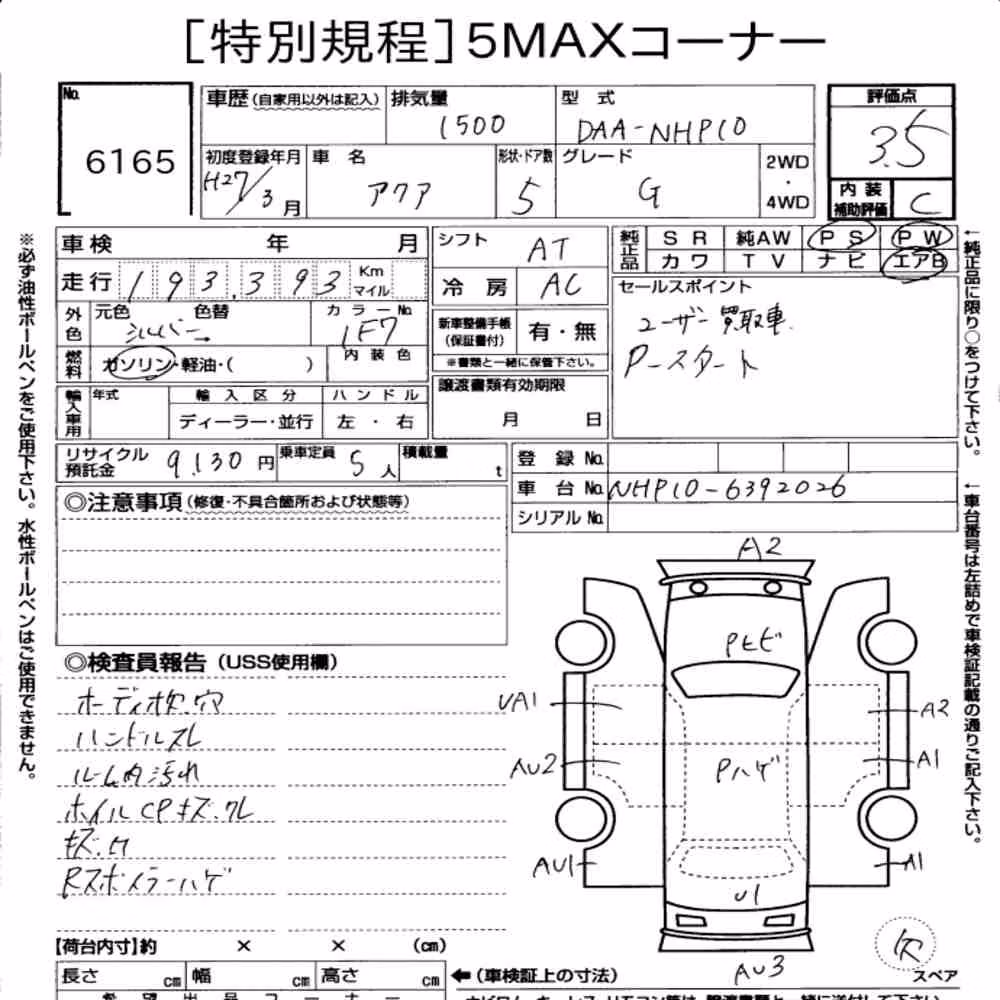 ［特別規程］5MAXコーナー
No. 6165
車歴（自家用以外は記入） 排気量 1500 型式 DAA-NHP10
評価点 3.5
初度登録年月 H27/3月 車名 アクア 形状・ドア数 5 グレード G 2WD・4WD
内装補助評価 C
車検 年 月
走行 193,393 Km マイル
外色 元色 シルバー 色替 カラーNo. 1F7
燃料 ガソリン・軽油・( ) 内装色
輸入車用 年式 輸入区分 ハンドル
ディーラー・並行 左・右
シフト AT
冷房 AC
新車整備手帳（保証書付） 有・無
※書類と一緒に保管下さい。
譲渡書類有効期限
月 日
純正品 SR 純AW PS PW
カワ TV ナビ エアB
セールスポイント
ユーザー買取車
Pースタート
リサイクル預託金 9,130円 乗車定員 5人 積載量 t
登録No.
車台No. NHP10-6392026
シリアルNo.
◎注意事項（修復・不具合箇所および状態等）
◎検査員報告（USS使用欄）
ハンドルスレ
ルーム内汚れ
ホイルCPキズ.クレ
Rスポイラーハゲ
A2
Pヒビ
UA1
A2
AU2
Pハゲ
A1
AU1
A1
U1
AU3
欠
スペア
【荷台内寸】約 × × （cm）
長さ cm 幅 cm 高さ cm
←（車検証上の寸法）
※必ず油性ボールペンをご使用下さい。水性ボールペンはご使用できません。
←純正品に限り○をつけて下さい。
←車台番号は左詰めで車検証記載の通りご記入下さい。